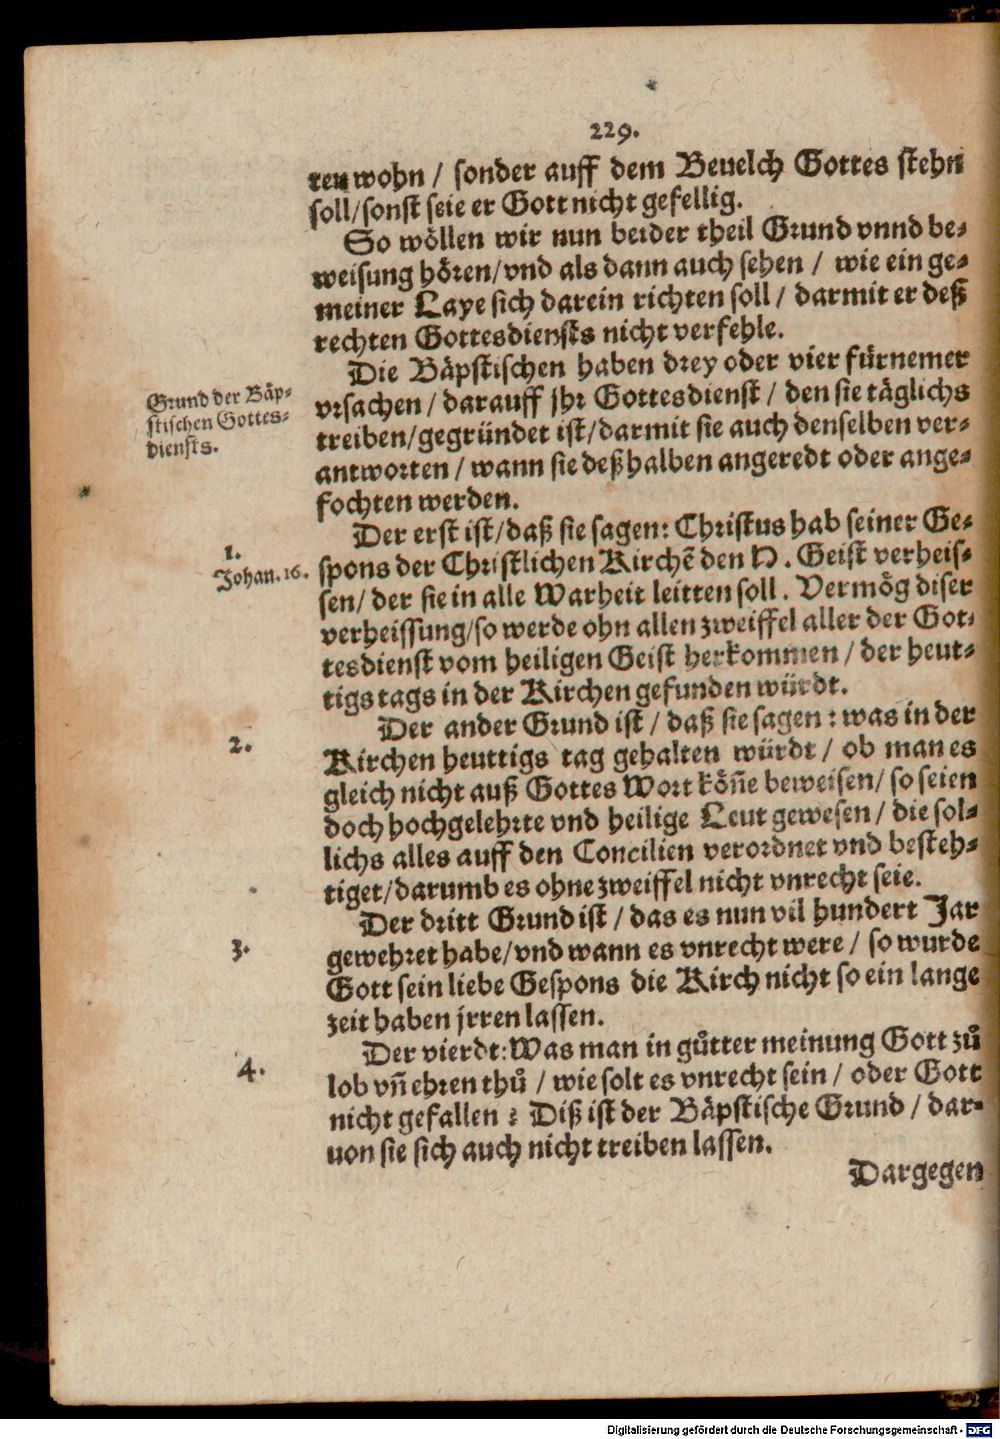 229.
ten wohn / sonder auff dem Beuelch Gottes stehn
soll/sonst seie er Gott nicht gefellig.
So wöllen wir nun beider theil Grund vnnd be-
weisung hören/vnd als dann auch sehen / wie ein ge-
meiner Laye sich darein richten soll / darmit er deß
rechten Gottesdiensts nicht verfehle.
Die Bäpstischen haben drey oder vier fürnemer
vrsachen / darauff jhr Gottesdienst / den sie täglichs
treiben/gegründet ist/darmit sie auch denselben ver-
antworten / wann sie deßhalben angeredt oder ange-
fochten werden.
Grund der Bäp-
stischen Gottes-
diensts.
Der erst ist/daß sie sagen: Christus hab seiner Ge-
spons der Christlichen Kirchẽ den H. Geist verheis-
sen/ der sie in alle Warheit leitten soll. Vermög diser
verheissung/so werde ohn allen zweiffel aller der Got-
tesdienst vom heiligen Geist herkommen / der heut-
tigs tags in der Kirchen gefunden würdt.
1.
Johan. 16.
Der ander Grund ist / daß sie sagen: was in der
Kirchen heuttigs tag gehalten würdt / ob man es
gleich nicht auß Gottes Wort köñe beweisen/ so seien
doch hochgelehrte vnd heilige Leut gewesen / die sol-
lichs alles auff den Concilien verordnet vnd besteh-
tiget/darumb es ohne zweiffel nicht vnrecht seie.
2.
Der dritt Grund ist / das es nun vil hundert Jar
gewehret habe/vnd wann es vnrecht were / so wurde
Gott sein liebe Gespons die Kirch nicht so ein lange
zeit haben jrren lassen.
3.
Der vierdt: Was man in gůtter meinung Gott zů
lob vñ ehren thů / wie solt es vnrecht sein / oder Gott
nicht gefallen? Diß ist der Bäpstische Grund / dar-
uon sie sich auch nicht treiben lassen.
4.
Dargegen
Digitalisierung gefördert durch die Deutsche Forschungsgemeinschaft - DFG